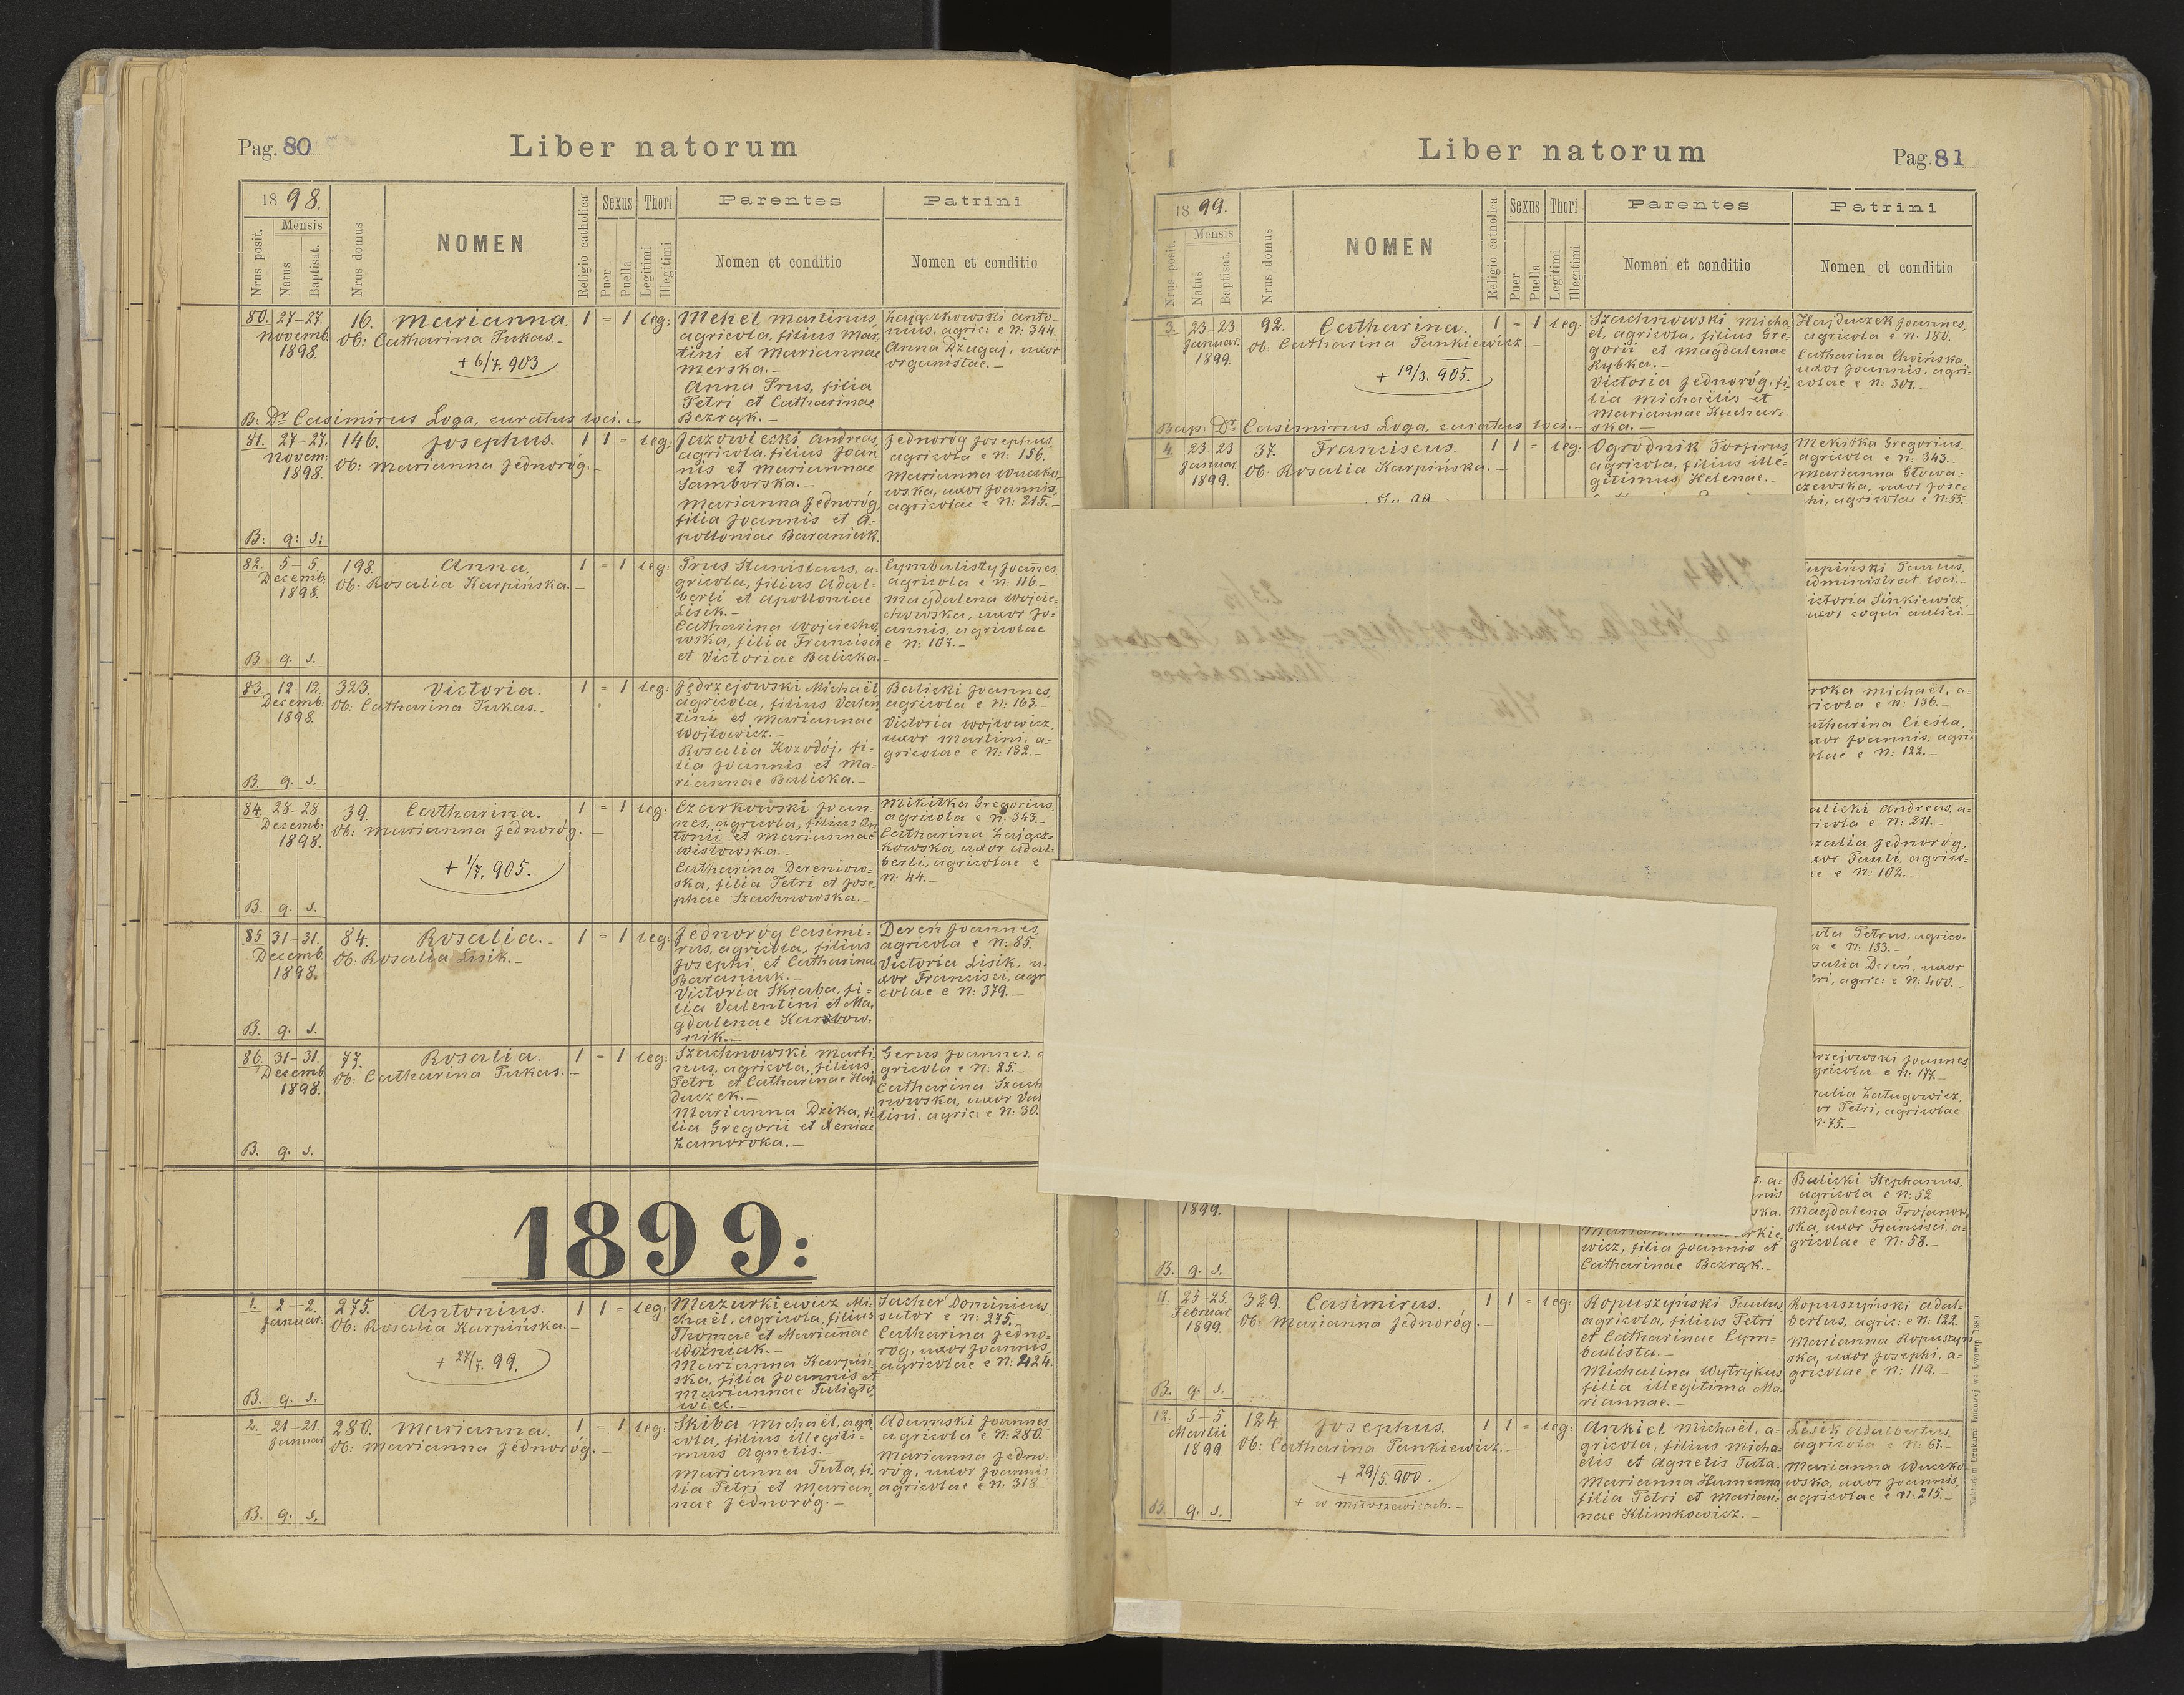 Pag. 80
Liber natorum
18 98.
Mensis
Nrus posit.
Natus
Baptisat.
Nrus domus
NOMEN
Religio catholica
Sexus
Puer
Puella
Thori
Legitimi
Illegitimi
Parentes
Nomen et conditio
Patrini
Nomen et conditio
80. 27-27. Novemb. 1898.
16. Marianna.
Ob: Catharina Pukas.-
+ 6/7. 903
1 = 1 leg:
Mehel Martinus,
agricola, filius Mar,
tini et Mariannae
Merska.-
Anna Prus, filia
Petri et Catharinae
Bezrąk.-
Zajączkowski Anto-
nius, agric: e N: 344.
Anna Dżugaj, uxor
organistae.-
B: Dr Casimirus Loga, curatus loci.-
81. 27-27. Novem: 1898.
146. Josephus.
Ob: Marianna Jednoróg.-
1 1 = leg:
Jazowiecki Andreas,
agricola, filius Joan
nis et Mariannae
Samborska.-
Marianna Jednoróg,
filia Joannis et A-
polloniae Baraniuk.
Jednoróg Josephus,
agricola e N: 156.
Marianna Wuczko,
wska, uxor Joannis,
agricolae e N: 215.-
B: q: s:
82. 5-5. Decemb. 1898.
198. Anna.
Ob: Rosalia Karpińska.-
1 = 1 leg:
Prus Stanislaus, a-
gricola, filius Adal-
berti et Apolloniae
Lisik.-
Catharina Wojciecho,
wska, filia Francisci
et Victoriae Balicka.-
Cymbalisty Joannes,
agricola e N: 116.-
Magdalena Wojcie-
chowska, uxor Jo-
annis, agricolae
e N: 107.-
B. q. s.
83. 12-12. Decemb: 1898.
323. Victoria.
Ob: Catharina Pukas.-
1 = 1 leg:
Jędrzejowski Michaël,
agricola, filius Valen
tini et Mariannae
Wojtowicz.-
Rosalia Kozodój, fi-
lia Joannis et Ma-
riannae Balicka.-
Balicki Joannes,
agricola e N: 163.-
Victoria Wojtowicz,
uxor Martini, a-
gricolae e N: 132.-
B. q. s.
84. 28-28. Decemb: 1898.
39. Catharina.
Ob: Marianna Jednoróg.-
+ 1/7. 905.
1 = 1 leg:
Czarkowski Joan-
nes, agricola, filius An
tonii et Mariannae
Wisłowska.-
Catharina Dereniow-
ska, filia Petri et Jose,
phae Szachnowska.-
Mikitka Gregorius,
agricola e N: 343.-
Catharina Zającz-
kowska, uxor Adal-
berti, agricolae e
N: 44.-
B. q. s.
85 31-31. Decemb. 1898.
84. Rosalia.-
Ob: Rosalia Lisik.-
1 = 1 leg:
Jednoróg Casimi-
rus, agricola, filius
Josephi et Catharinae
Baraniuk.-
Victoria Skraba, fi-
lia Valentini et Ma,
gdalenae Karbow.
nik.-
Dereń Joannes,
agricola e N: 85.
Victoria Lisik, u-
xor Francisci, agr
colae e N: 379.-
B. q. s.
86. 31-31. Decemb. 1898.
77. Rosalia.
Ob: Catharina Pukas.-
1 = 1 leg:
Szachnowski Marti,
nus, agricola, filius
Petri et Catharinae Haj
duczek.-
Marianna Dzika, fi-
lia Gregorii et Xeniae
Zamoroka.-
Gerus Joannes, a
gricola e N: 25.-
Catharina Szach
nowska, uxor Va
tini, agric: e N: 30.
B. q. s.
1899:
1. 2-2. Januar:
275. Antonius.
Ob: Rosalia Karpińska.-
+ 27/7. 99.
1 1 = leg:
Mazurkiewicz Mi-
chaël, agricola, filius
Thomae et Mariannae
Woźniak.-
Marianna Karpiń-
ska, filia Joannis et
Mariannae Tuligło,
wiec.-
Sacher Dominicus
sutor e N: 275.
Catharina Jedno-
róg, uxor Joannis,
agricolae e N: 424.
B. q. s.
2. 21-21. Januar
280. Marianna.
Ob: Marianna Jednoróg.-
1 = 1 leg:
Skiba Michaël, agri
cola, filius illegiti-
mus Agnetis.-
Marianna Tuta, fi-
lia Petri et Marian,
nae Jednoróg.-
Adamski Joannes
agricola e N: 280.
Marianna Jedno-
róg, uxor Joannis
agricolae e N: 318.
B. q. s.
Liber natorum
Pag. 81
18 99.
Mensis
Nrus posit.
Natus
Baptisat.
Nrus domus
NOMEN
Religio catholica
Sexus
Puer
Puella
Thori
Legitimi
Illegitimi
Parentes
Nomen et conditio
Patrini
Nomen et conditio
3. 23-23. Januar. 1899.
92. Catharina.
Ob: Catharina Pankiewicz.-
+ 19/3. 905.
1 = 1 leg:
Szachnowski Micha,
el, agricola, filius Gre-
gorii et Magdalenae
Rybka.-
Victoria Jednoróg, fi
lia Michaëlis et
Mariannae Kuchar-
ska.-
Hajduczek Joannes,
agricola e N: 180.
Catharina Chvińska,
uxor Joannis, agri-
colae e N: 301.-
Bap. Dr Casimirus Loga, curatus loci.-
4. 23-23 Januar. 1899.
37. Franciscus.
Ob: Rosalia Karpińska.-
1 1 = leg:
Ogrodnik Porfirus,
agricola, filius ille-
gitimus Helenae.-
Mekitka Gregorius,
agricola e N: 343.-
Marianna Głowa-
czewska, uxor Jose-
phi, agricolae e N: 55.-
upiński Paulus,
dministrat loci.-
ictoria Sinkiewicz,
uxor coqui aulici.-
roka Michaël, a-
ricola e N: 136.-
atharina Cieśla,
xor Joannis, agri-
olae e N: 122.-
aliski Andreas, a-
icola e N: 211.-
zalia Jednoróg,
xor Pauli, agrico-
e e N: 102.-
uta Petrus, agrico-
a e N: 133.-
salia Dereń, uxor
ri, agric: e N: 400.-
rzejowski Joannes,
gricola e N: 177.-
alia Załugowicz,
or Petri, agricolae
N: 75.-
1899.
wicz, filia Joannis et
Catharinae Bezrąk.-
Balicki Stephanus,
agricola e N: 52.
Magdalena Trojanow,
ska, uxor Francisci, a-
gricolae e N: 58.-
B. q. s.
11. 25-25. Februar. 1899.
329. Casimirus.
Ob: Marianna Jednoróg.-
1 1 = leg:
Kopuszyński Paulus,
agricola, filius Petri
et Catharinae Cym-
balista.-
Michalina Wytrykus,
filia illegitima Ma-
riannae.-
Kopuszyński Adal-
bertus, agric: e N: 122.
Marianna Kopuszyń
ska, uxor Josephi, a-
gricolae e N: 119.-
B. q. s.
12. 5-5 Martii 1899.
124. Josephus.
Ob: Catharina Pankiewicz.-
+ 29/5 900.
+ w Miłoszewicach.-
1 1 = leg:
Ankiel Michaël, a-
gricola, filius Micha-
elis et Agnetis Tuta.
Marianna Humenna,
filia Petri et Marian-
nae Klimkowicz.-
Lisik Adalbertus,
agricola e N: 67.-
Marianna Wuczko
wska, uxor Joannis,
agricolae e N: 215.-
B. q. s.
Nakładem Drukarni Ludowej we Lwowie 1889